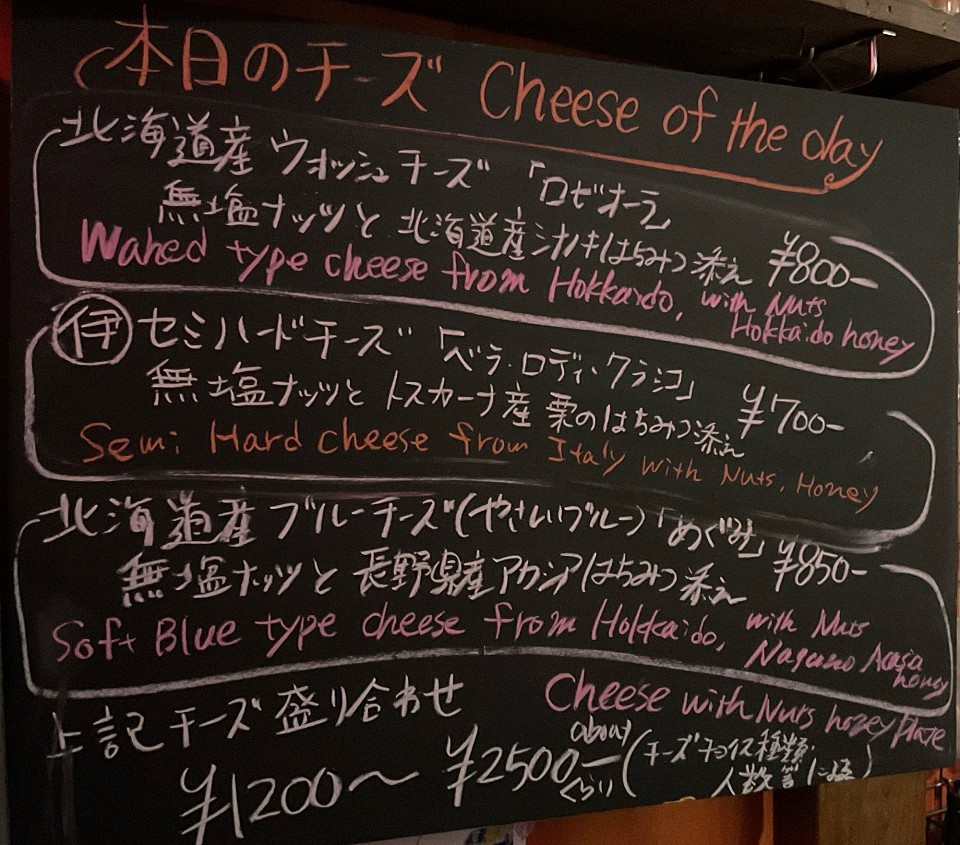 本日のチーズ Cheese of the day
北海道産 ウォッシュチーズ 「ロビオーラ」
無塩ナッツと 北海道産シナノキはちみつ添え ¥800-
Wahed type cheese from Hokkaido, with Nuts
Hokkaido honey
伊 セミハードチーズ 「ベラ・ロディ・クラシコ」
無塩ナッツと トスカーナ産 栗のはちみつ添え ¥700-
Semi Hard cheese from Italy with Nuts, Honey
北海道産 ブルーチーズ(やさしいブルー)「めぐみ」 ¥850-
無塩ナッツと 長野県産アカシアはちみつ添え
Soft Blue type cheese from Hokkaido, with Nuts
Nagano Acasia
honey
上記チーズ盛り合わせ Cheese with Nuts honey Plate
¥1200〜 ¥2500- about くらい (チーズチョイス種類・
人数等に)